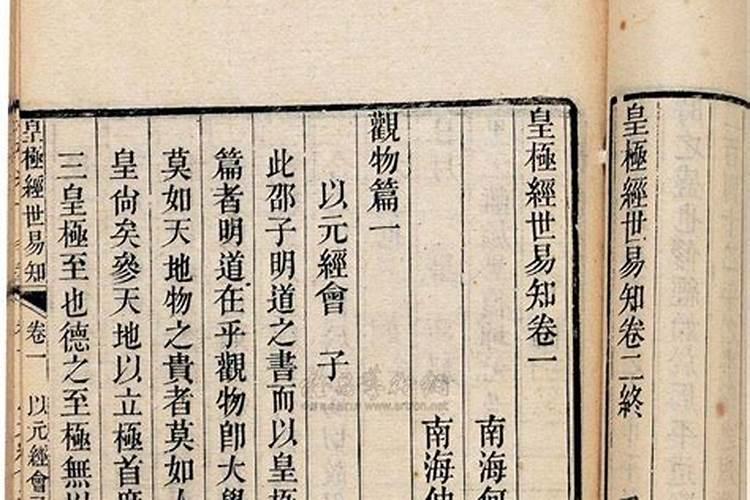 皇極經世易知卷二終
皇極經世易知卷一
南海何
南海
觀物篇一
以元經會 子
此邵子明道之書而以皇極
篇者明道在乎觀物即大學
莫如天地物之貴者莫如人
皇尙矣參天地以立極首庶
三皇極至也德之至極無以
皇極經世易知 卷一 以元經會